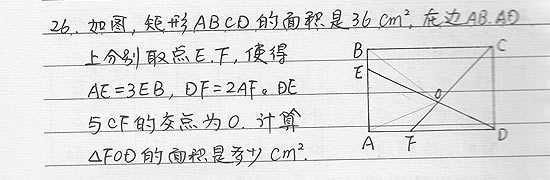 26. 如图,矩形ABCD的面积是36cm²,在边AB.AD
上分别取点E.F,使得
AE=3EB,DF=2AF。DE
与CF的交点为O.计算
△FOD的面积是多少cm².
B
C
E
O
A
F
D